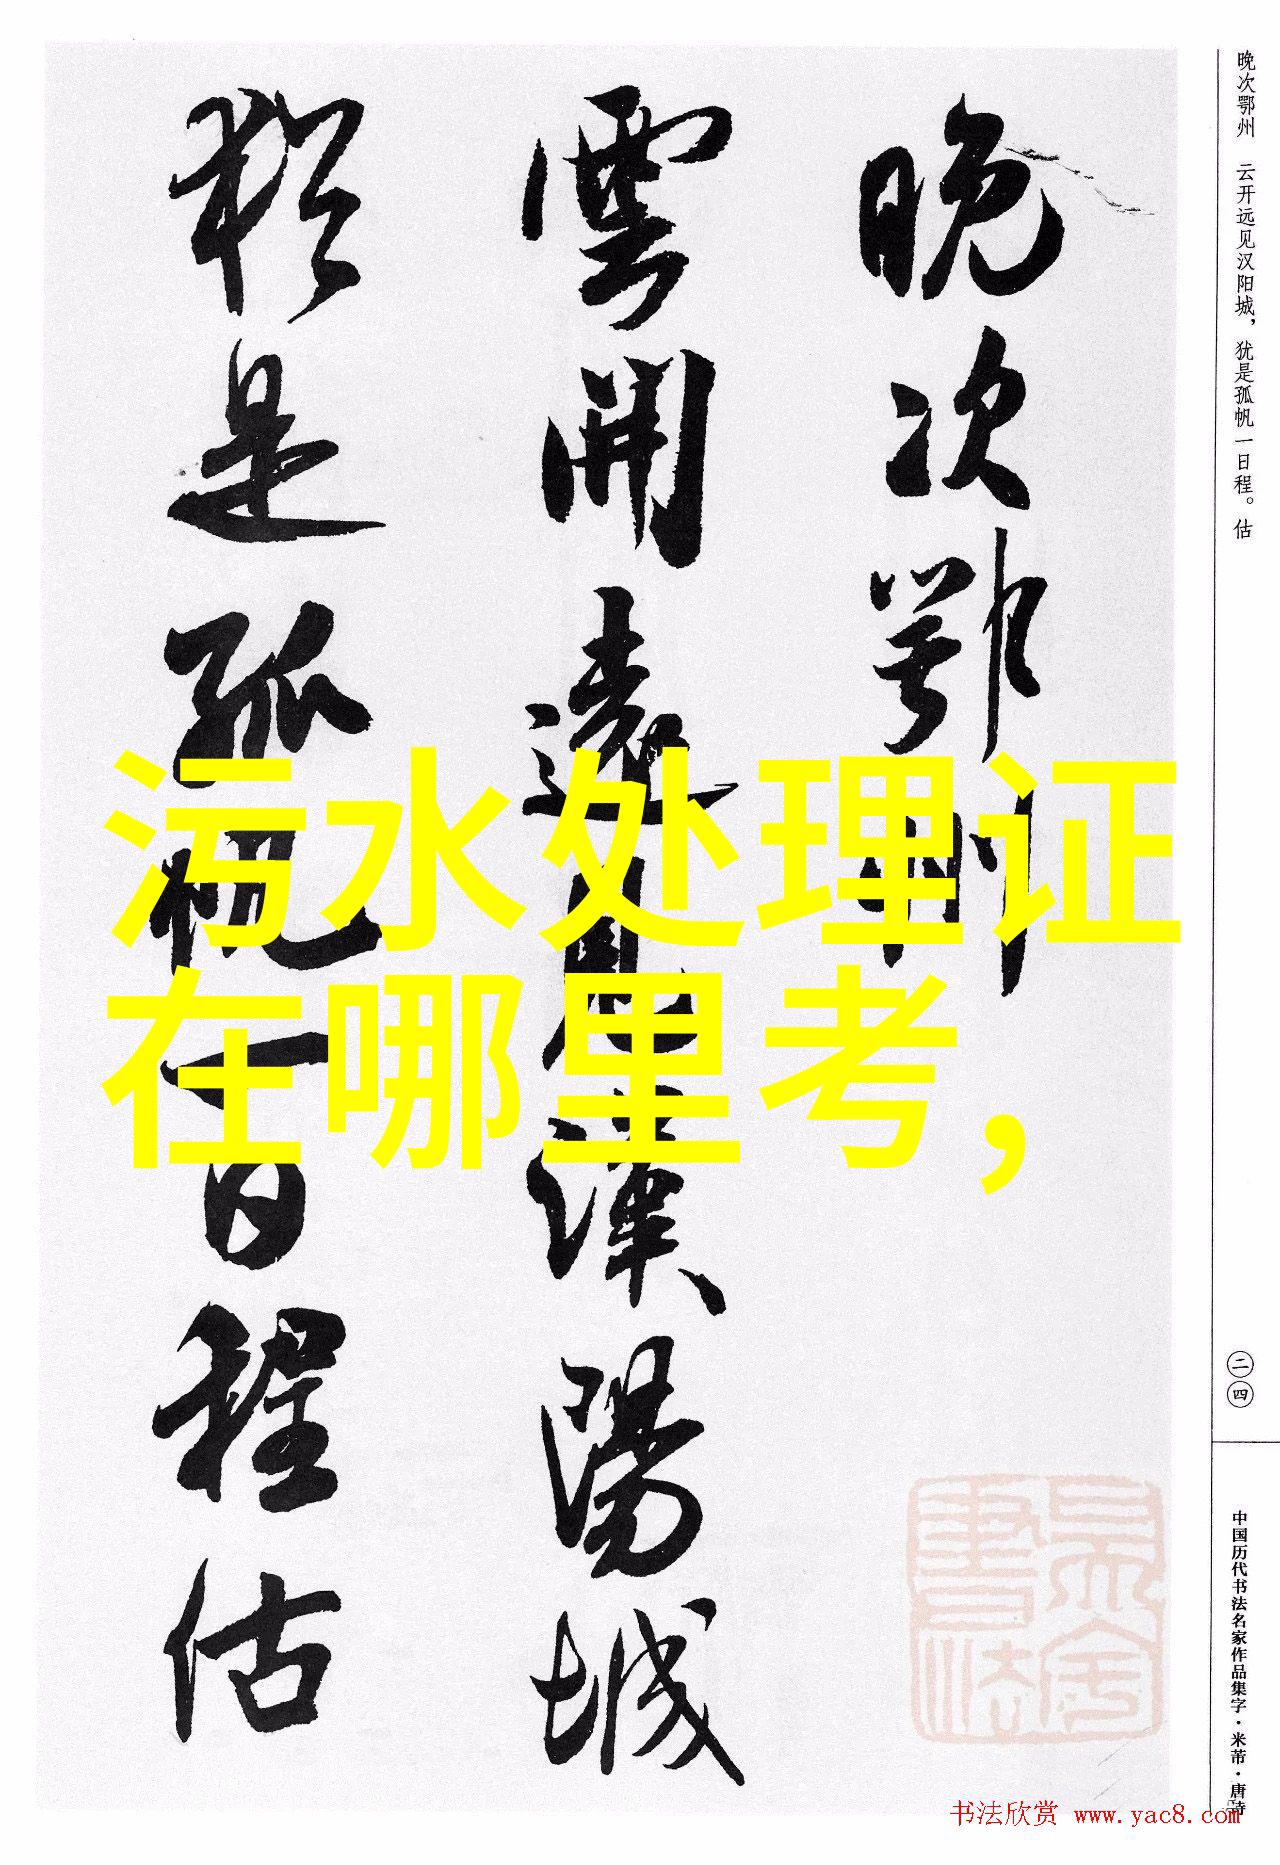 晚次鄂州　云开远见汉阳城，犹是孤帆一日程。估
二四
中国历代书法名家作品集字·米芾·唐诗
晚次鄂州
雲開遠見漢陽城
猶是孤帆一日程估
污水处理证
在哪里考，
书法欣赏 www.yac8.com